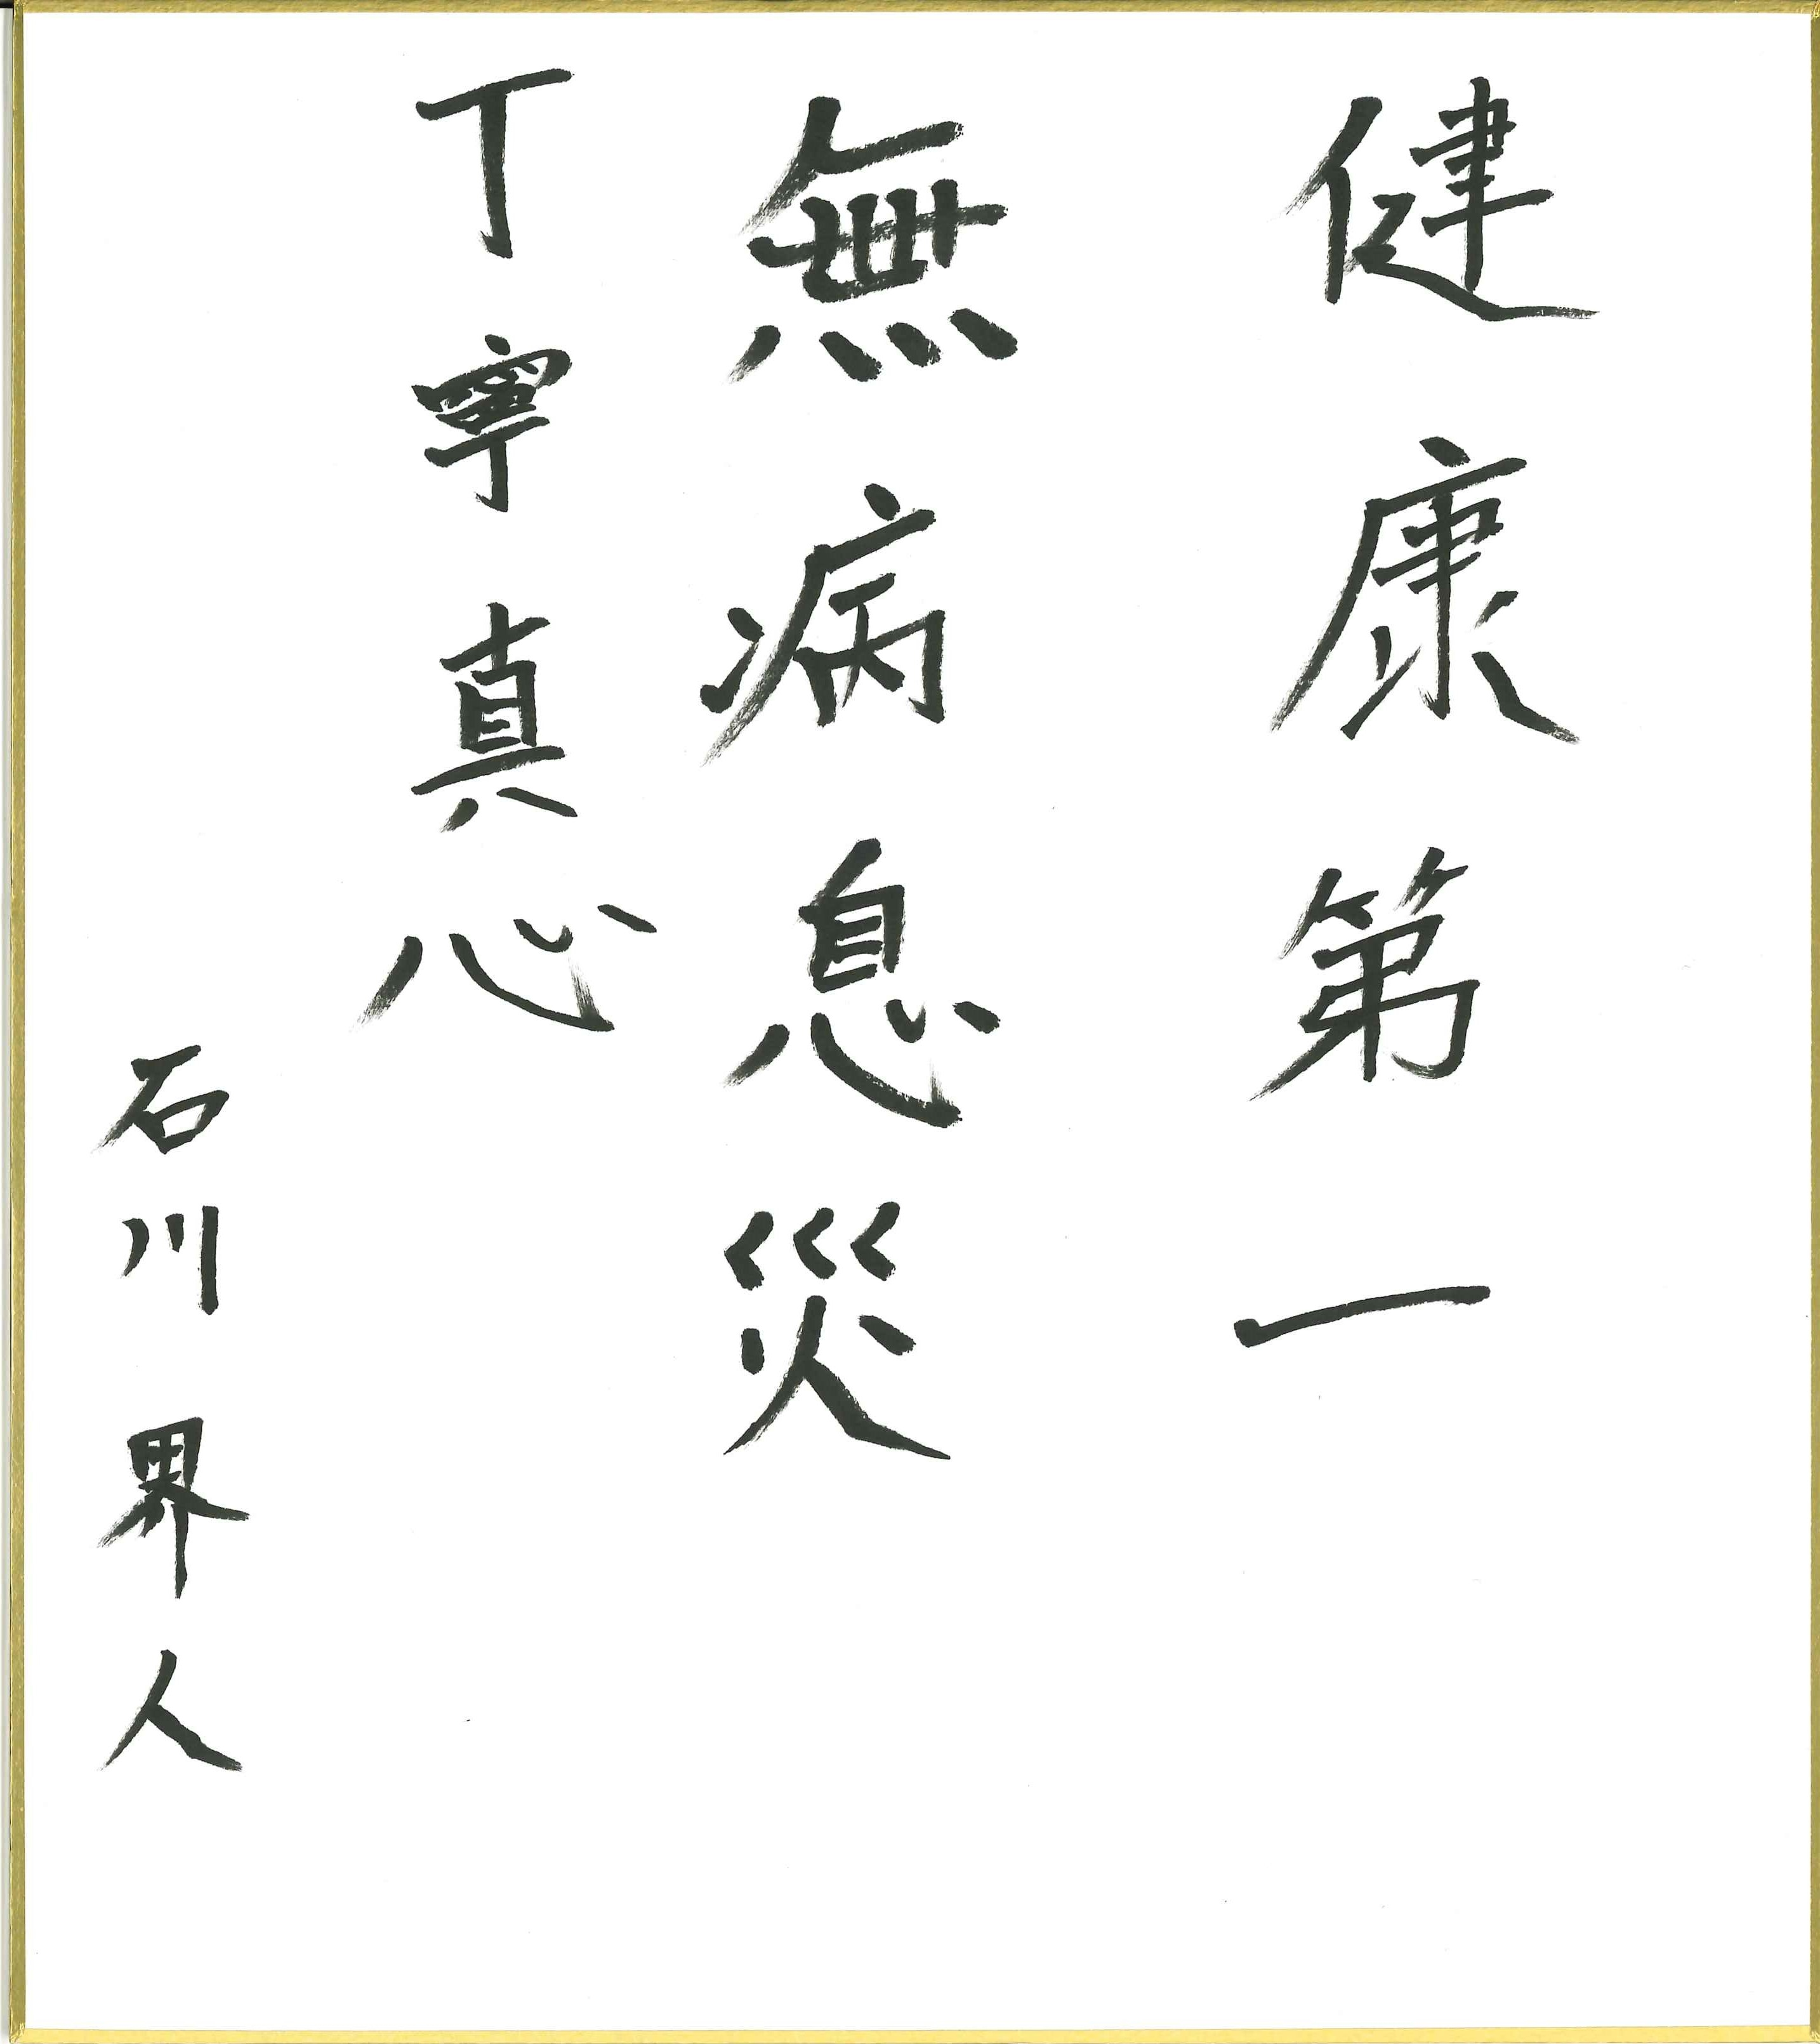 健康第一
無病息災
丁寧真心
石川界人